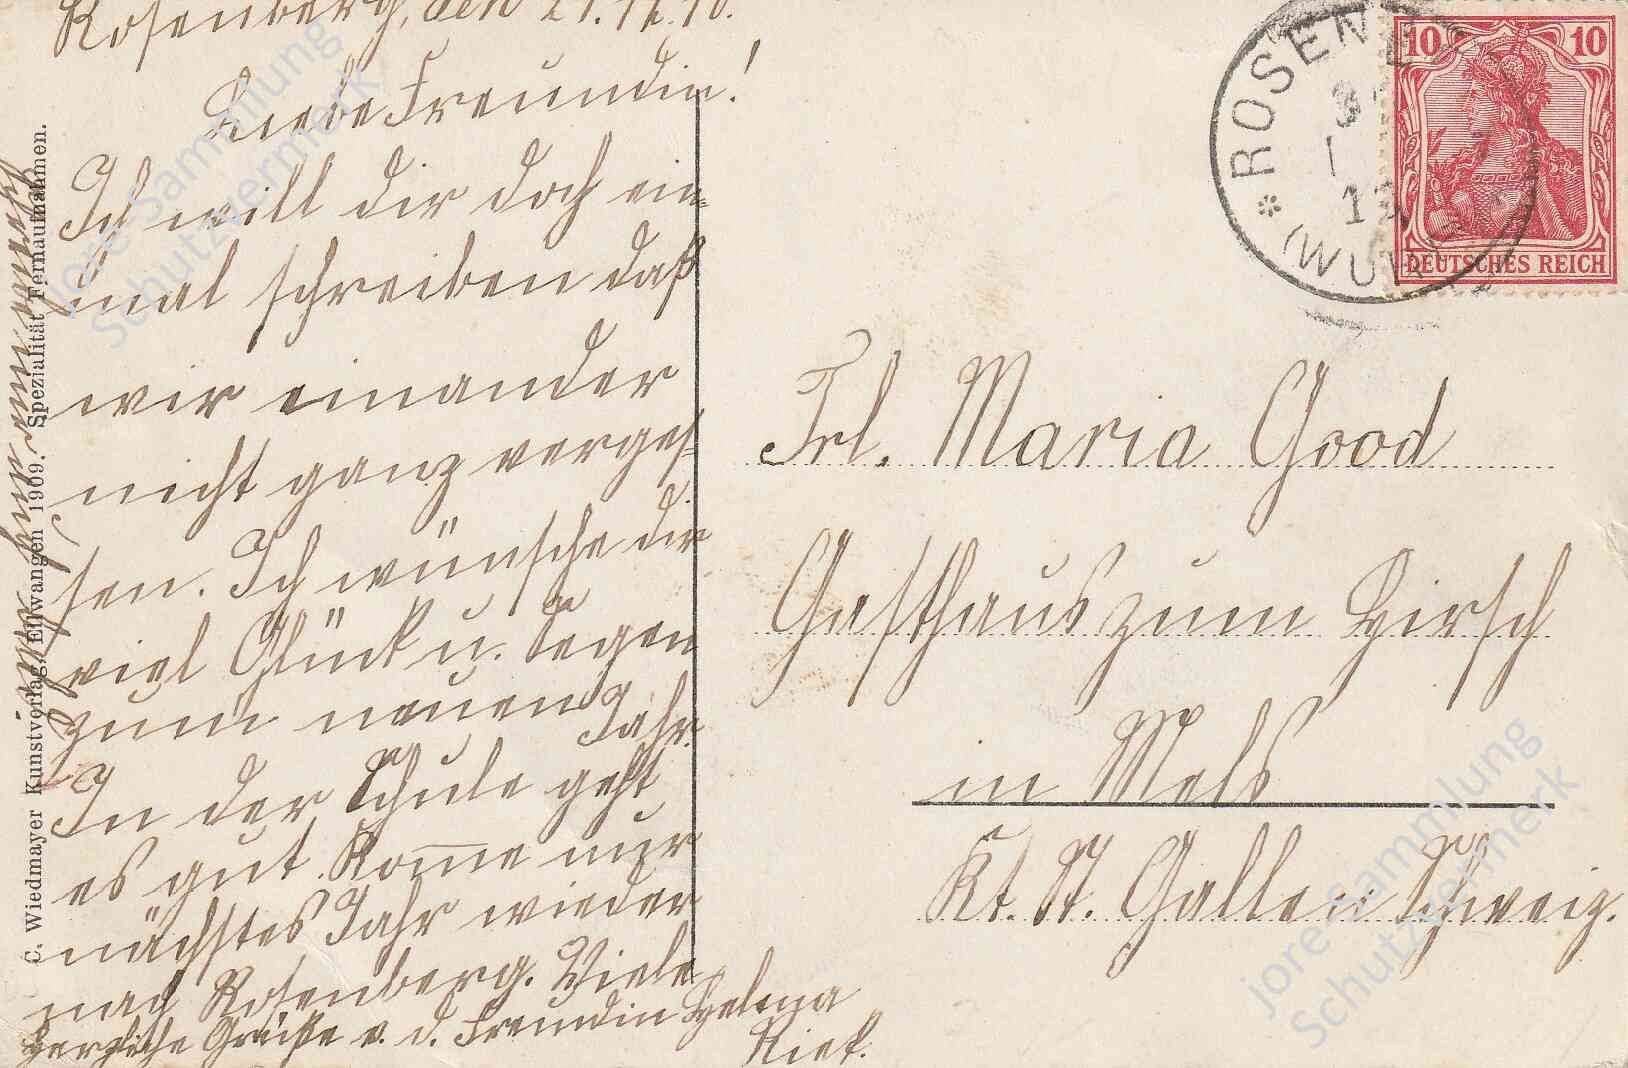 Rosenberg, den 21.12.10.
Liebe Freundin!
Ich will dir doch ein-
mal schreiben daß
wir einander
nicht ganz verges-
sen. Ich wünsche dir
viel Glück u. Segen
zum neuen
Jahr.
In der Schule geht
es gut. Kom̅e nur
nächstes Jahr wieder
nach Rosenberg. Viele
herzliche Grüße v. d. Freundin Helena
Rief.
C. Wiedmayer Kunstverlag, Ellwangen 1909. Spezialität Fernaufnahmen.
ROSENBE
1
(WÜR
10
10
DEUTSCHES REICH
Frl. Maria Good
Gasthaus zum Hirsch
in Mels
Kt. St. Gallen Schweiz.
jore-Sammlung
Schutzvermerk
jore-Sammlung
Schutzvermerk